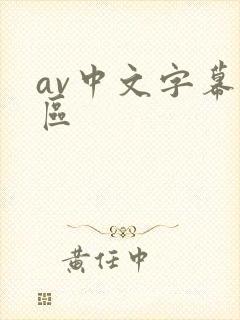 av中文字幕
區
黄任中